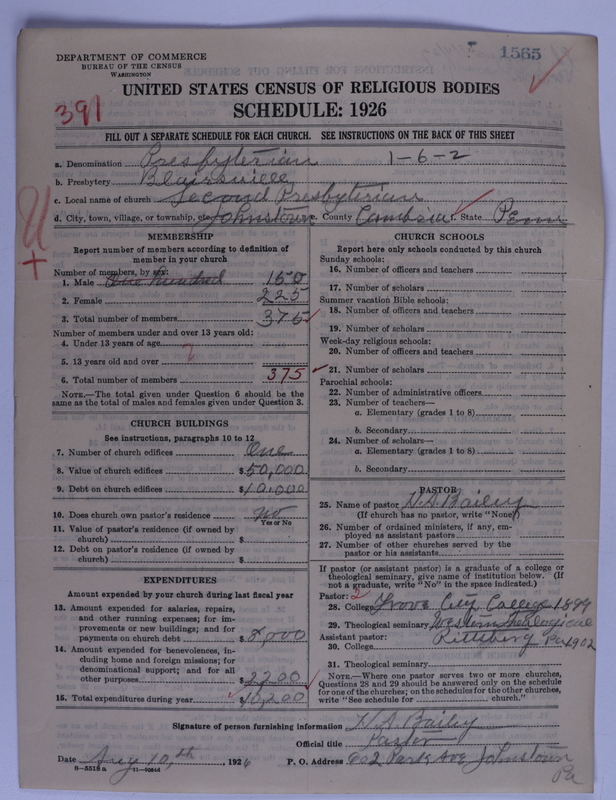 1565
DEPARTMENT OF COMMERCE
BUREAU OF THE CENSUS
WASHINGTON
UNITED STATES CENSUS OF RELIGIOUS BODIES
391
SCHEDULE: 1926
FILL OUT A SEPARATE SCHEDULE FOR EACH CHURCH. SEE INSTRUCTIONS ON THE BACK OF THIS SHEET
a. Denomination Presbyterian 1-6-2
b. Presbytery Blairsville
c. Local name of church Second Presbyterian
d. City, town, village, or township, etc. Johnstown e. County Cambria f. State Penn
MEMBERSHIP
Report number of members according to definition of member in your church
Number of members, by sex:
1. Male One hundred 150
2. Female 225
3. Total number of members 375
Number of members under and over 13 years old:
4. Under 13 years of age ?
5. 13 years old and over
6. Total number of members 375
NOTE.—The total given under Question 6 should be the same as the total of males and females given under Question 3.
CHURCH BUILDINGS
See instructions, paragraphs 10 to 12
7. Number of church edifices One
8. Value of church edifices $50,000
9. Debt on church edifices $10,000
10. Does church own pastor's residence no
Yes or No
11. Value of pastor's residence (if owned by church) $
12. Debt on pastor's residence (if owned by church) $
EXPENDITURES
Amount expended by your church during last fiscal year
13. Amount expended for salaries, repairs, and other running expenses; for improvements or new buildings; and for payments on church debt $8,000
14. Amount expended for benevolences, including home and foreign missions; for denominational support; and for all other purposes $2200
15. Total expenditures during year $10,200
CHURCH SCHOOLS
Report here only schools conducted by this church
Sunday schools:
16. Number of officers and teachers
17. Number of scholars
Summer vacation Bible schools:
18. Number of officers and teachers
19. Number of scholars
Week-day religious schools:
20. Number of officers and teachers
21. Number of scholars
Parochial schools:
22. Number of administrative officers
23. Number of teachers—
a. Elementary (grades 1 to 8)
b. Secondary
24. Number of scholars—
a. Elementary (grades 1 to 8)
b. Secondary
PASTOR
25. Name of pastor H. A. Bailey
(If church has no pastor, write "None")
26. Number of ordained ministers, if any, employed as assistant pastors
27. Number of other churches served by the pastor or his assistants
If pastor (or assistant pastor) is a graduate of a college or theological seminary, give name of institution below. (If not a graduate, write "No" in the space indicated.)
Pastor: 2
28. College Grove City College 1899
29. Theological seminary Western Theological
Assistant pastor: Pittsburg Pa 1902
30. College
31. Theological seminary
NOTE.—Where one pastor serves two or more churches, Questions 28 and 29 should be answered only on the schedule for one of the churches; on the schedules for the other churches, write "See schedule for church."
Signature of person furnishing information H A Bailey
Official title Pastor
Date Aug 10,th, 1926 P. O. Address 602 Park Ave Johnstown Pa